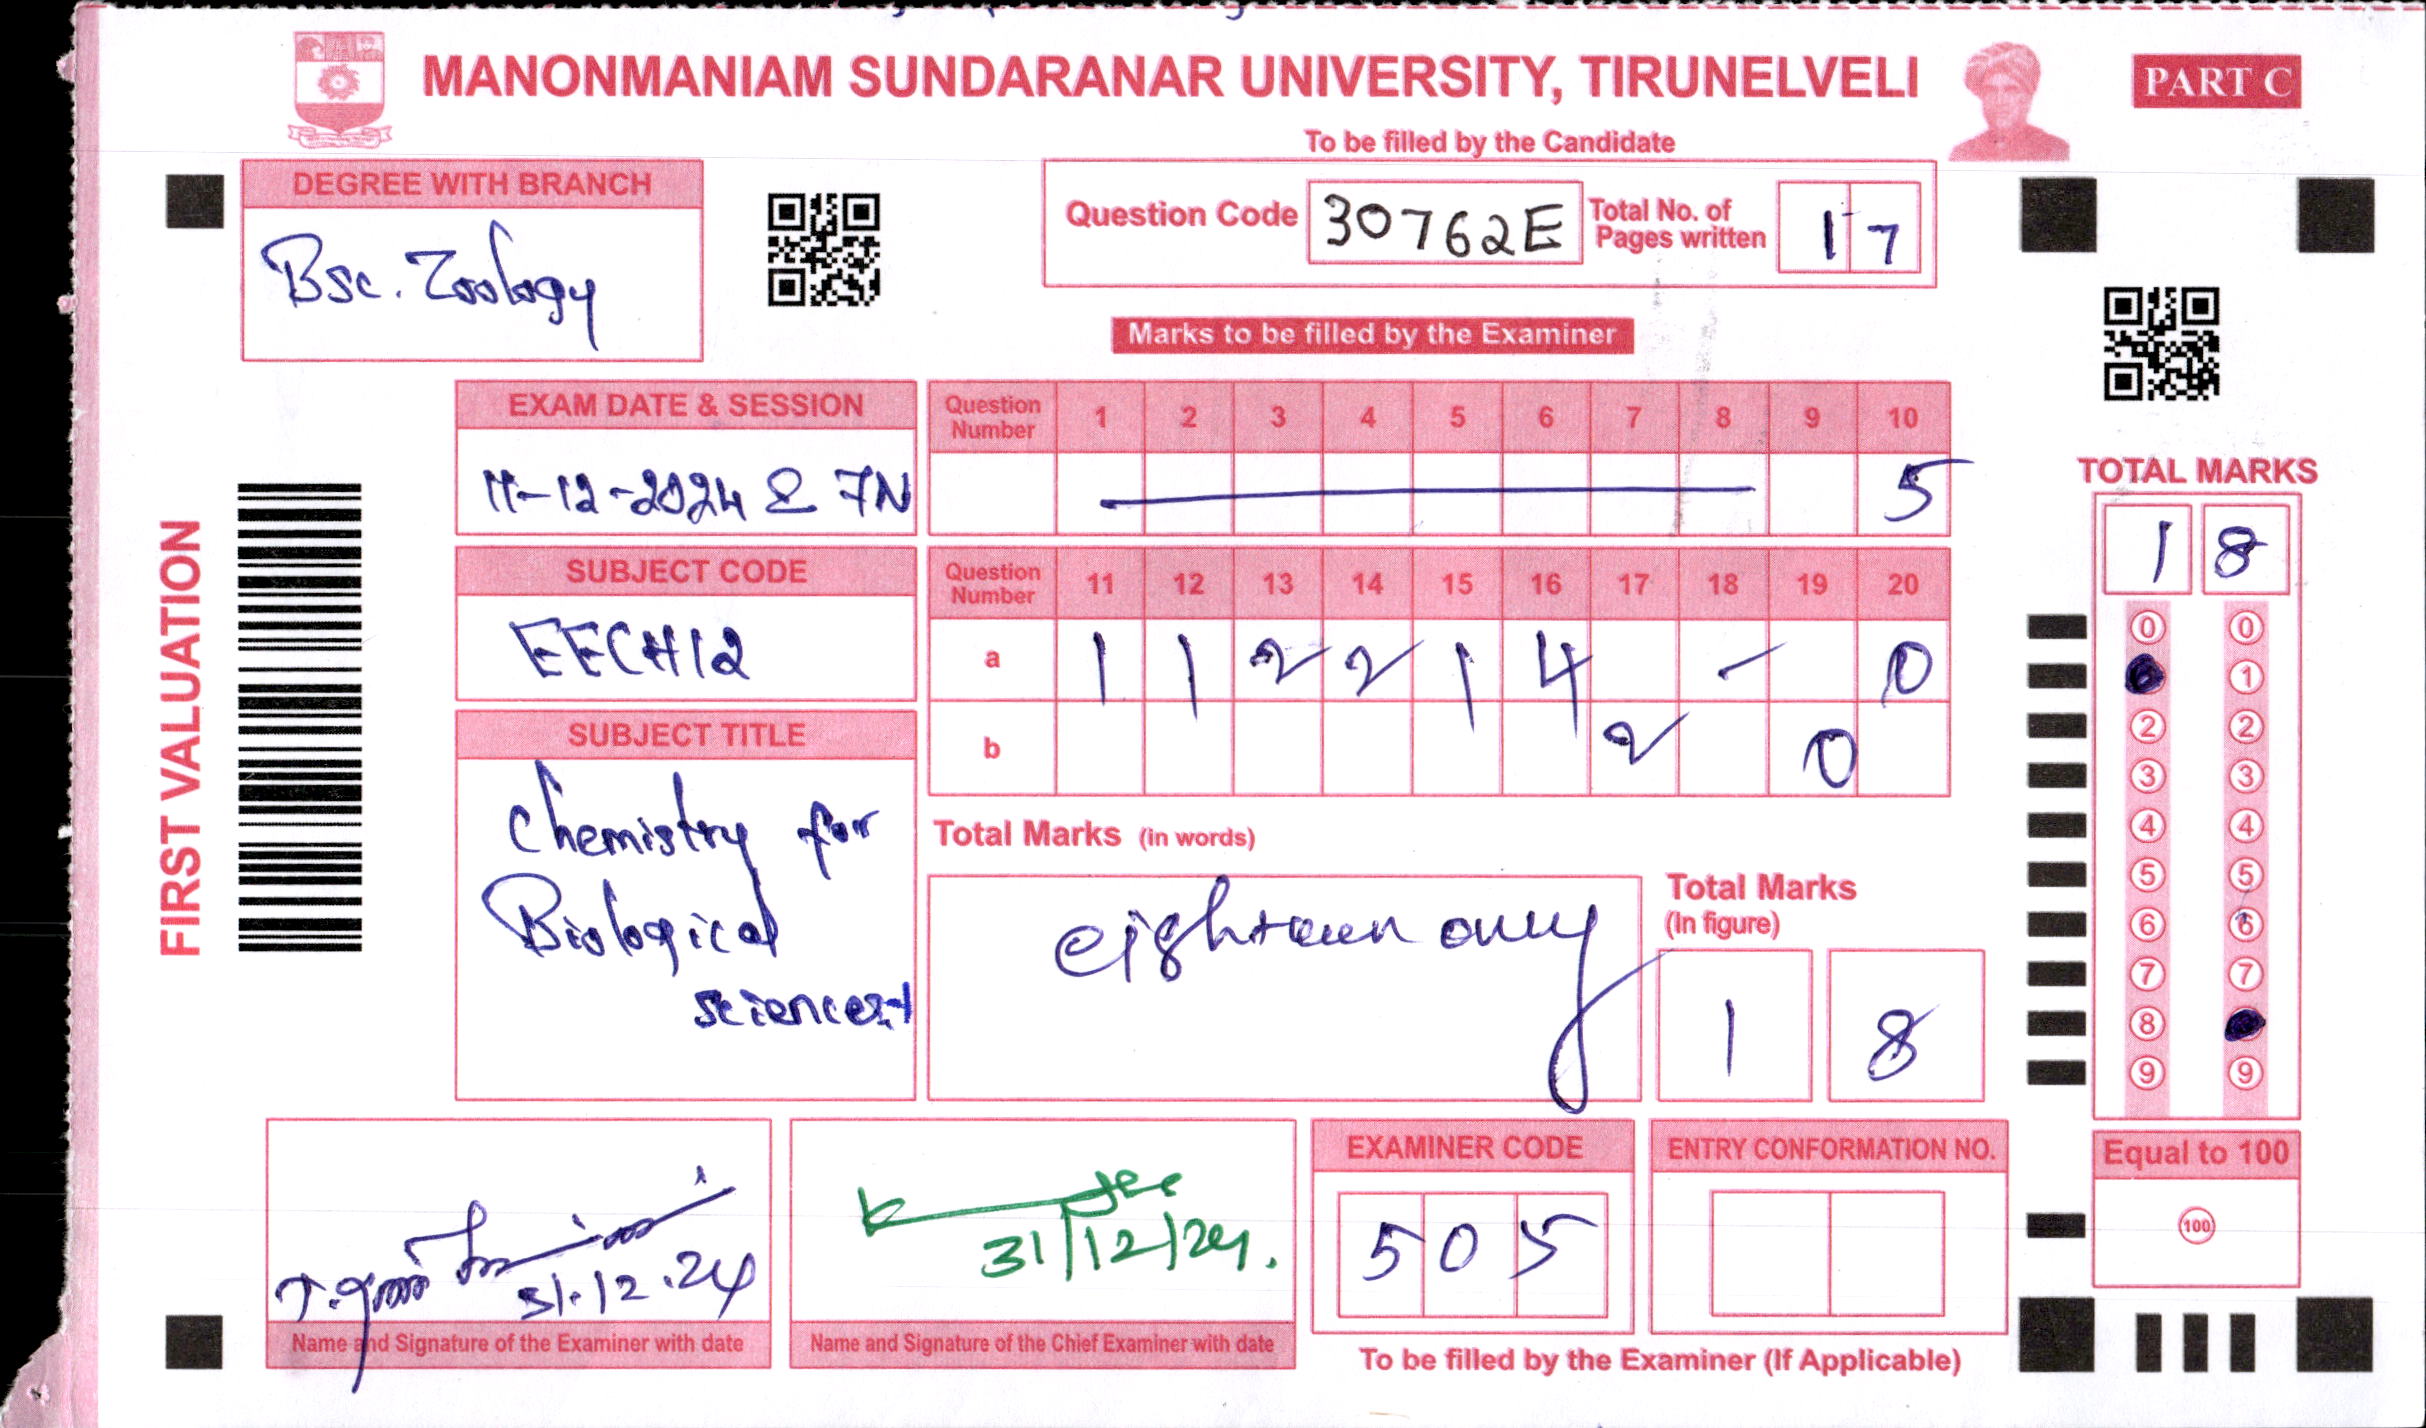 MANONMANIAM SUNDARANAR UNIVERSITY, TIRUNELVELI
PART C
To be filled by the Candidate
DEGREE WITH BRANCH
Bsc. Zoology
Question Code 30762E Total No. of Pages written 17
Marks to be filled by the Examiner
FIRST VALUATION
EXAM DATE & SESSION
11-12-2024 & FN
Question Number 1 2 3 4 5 6 7 8 9 10
5
SUBJECT CODE
EECH12
Question Number 11 12 13 14 15 16 17 18 19 20
a 1 1 2 2 1 4 - 0
b 2 0
SUBJECT TITLE
Chemistry for
Biological
sciences-1
Total Marks (in words)
eighteen only
Total Marks
(In figure)
1 8
TOTAL MARKS
1 8
0 0
1
2 2
3 3
4 4
5 5
6 6
7 7
8
9 9
Equal to 100
100
31.12.24
Name and Signature of the Examiner with date
31/12/24.
Name and Signature of the Chief Examiner with date
EXAMINER CODE
5 0 5
ENTRY CONFORMATION NO.
To be filled by the Examiner (If Applicable)